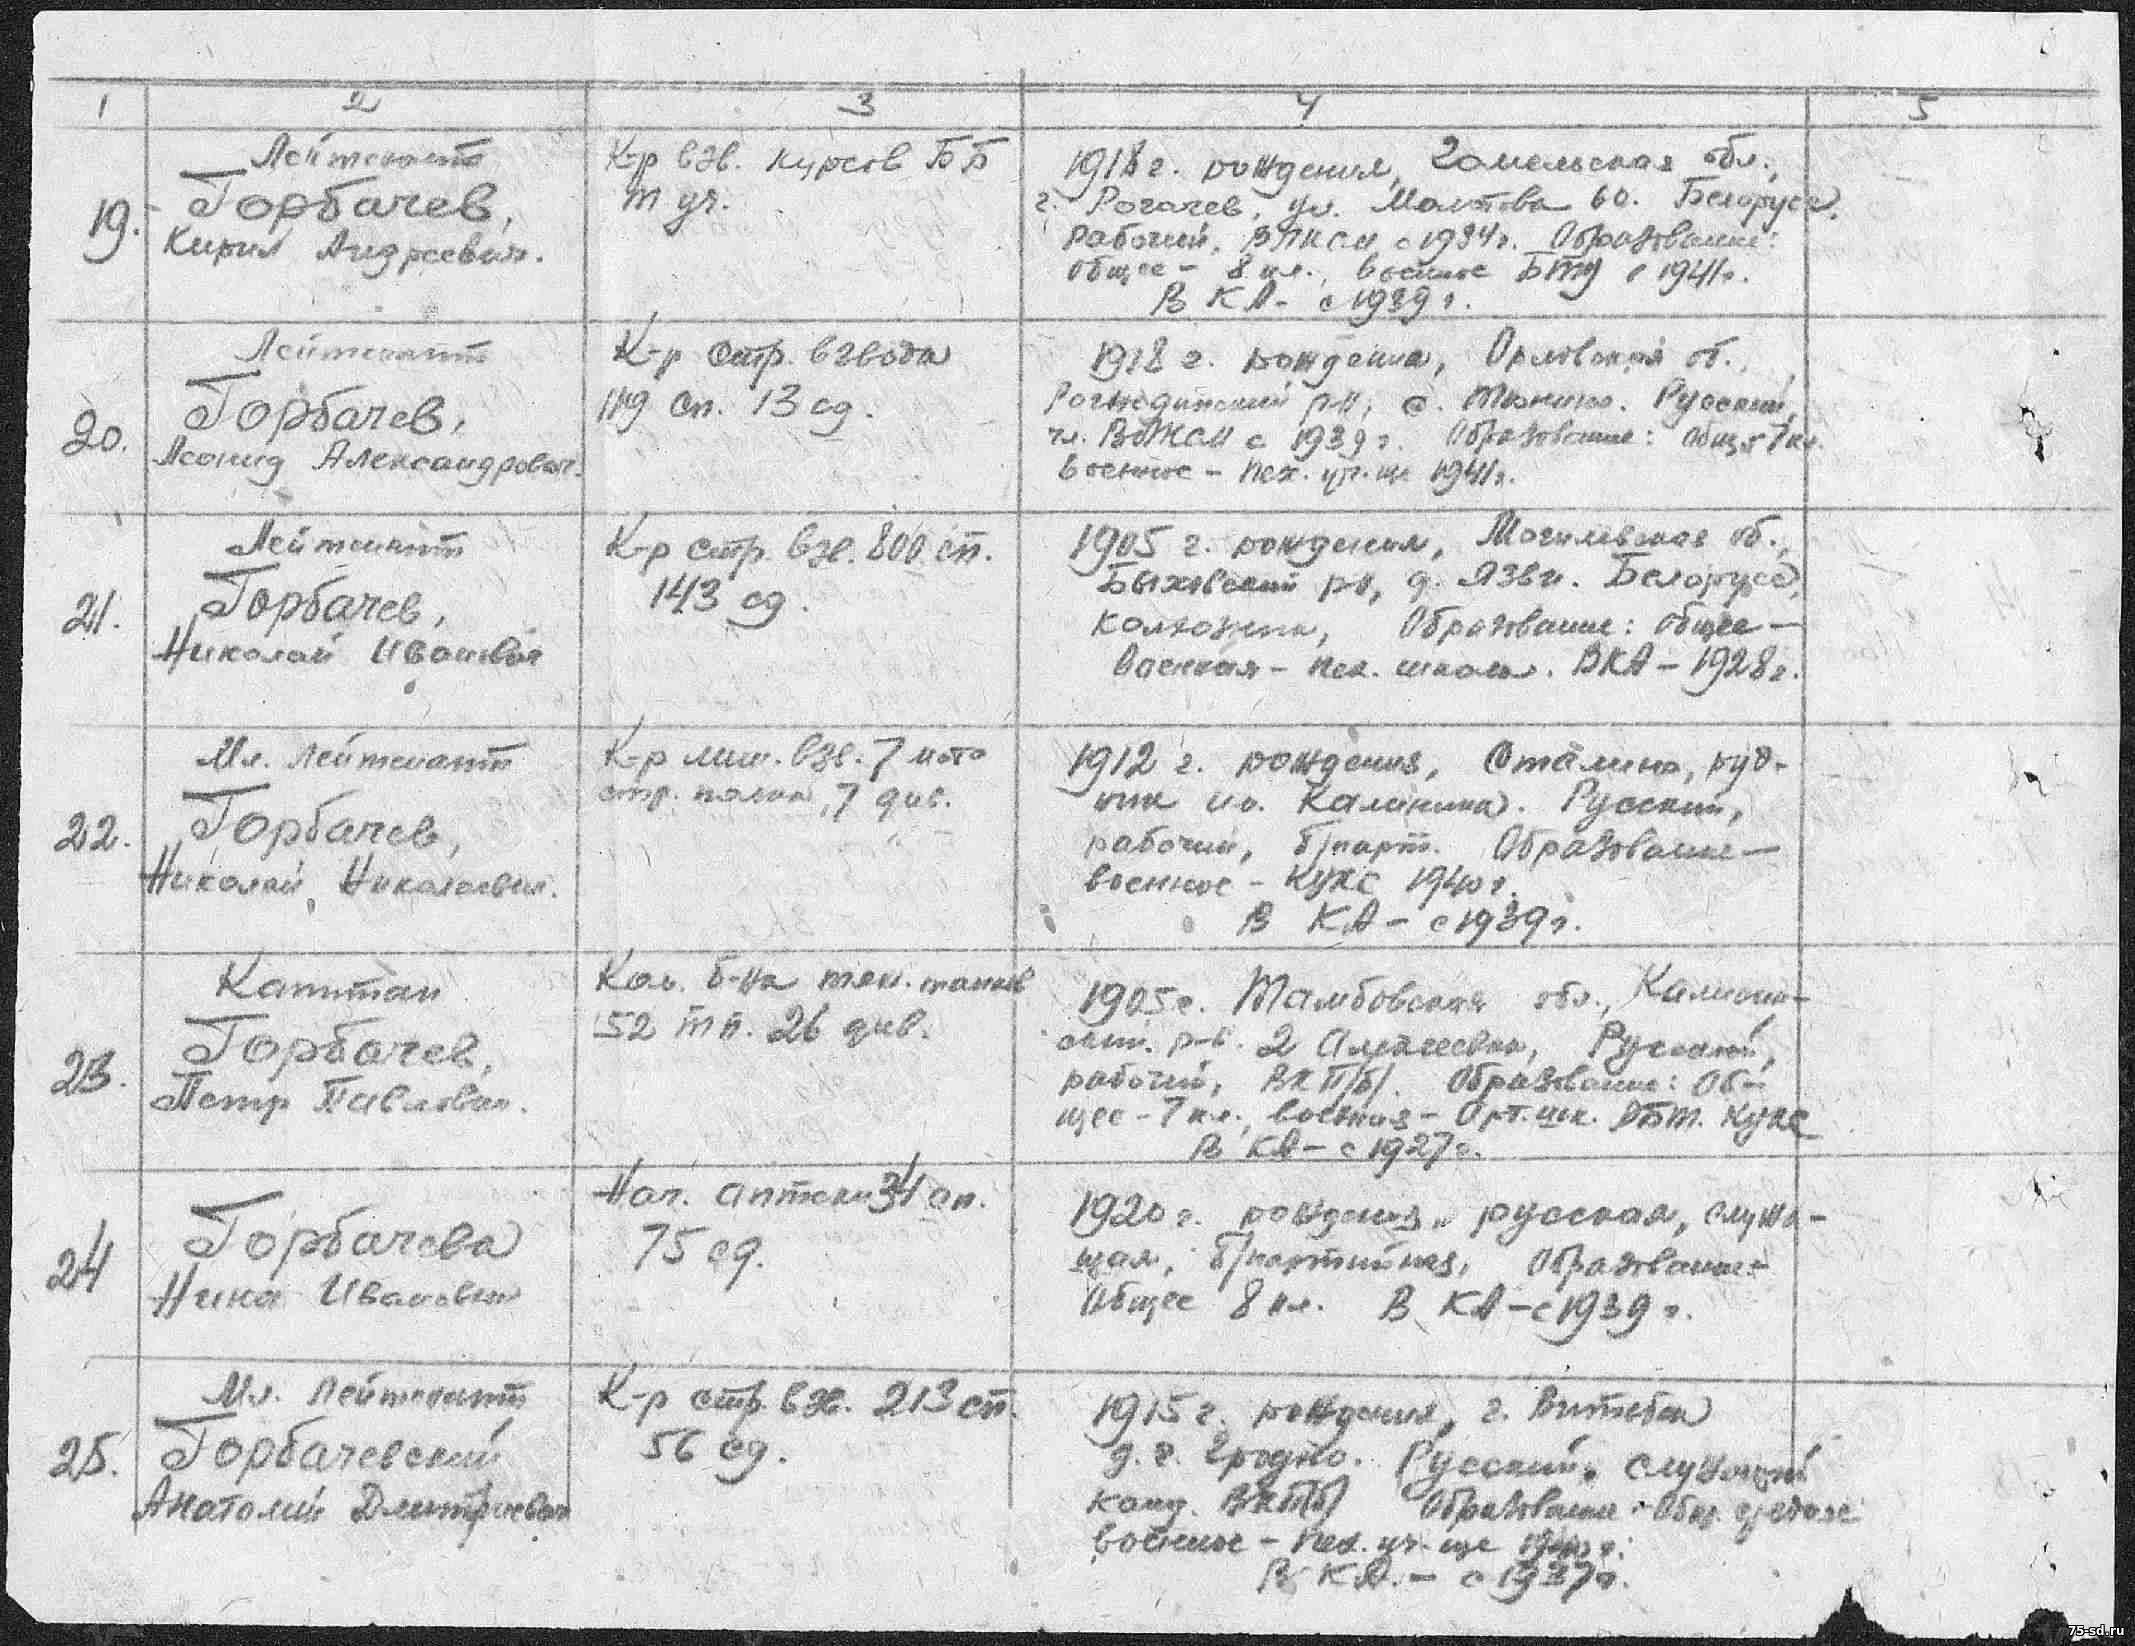 1 2 3 4 5
19.
Лейтенант
Горбачев,
Кирил Андреевич.
К-р взв. курсов ББ
т уч.
1918 г. рождения, Гомельская обл.,
г. Рогачев, ул. 60. Белорус.
рабочий, ВЛКСМ с 1934 г. Образование:
общее - 8 кл., военное БТУ с 1941 г.
В КА - с 1939 г.
20.
Лейтенант
Горбачев,
Леонид Александрович.
К-р стр. взвода
119 сп. 13 сд.
1918 г. рождения, Орловская об.,
р-н, с. Русский,
чл. ВЛКСМ с 1939 г. Образование: общ. 7 кл.
военное - пех. уч-ще 1941 г.
21.
Лейтенант
Горбачев,
Николай Иванович
К-р стр. взв. 800 сп.
143 сд.
1905 г. рождения, Могилевская об.,
Быховский р-н, д. Язви. Белорус,
Образование: общее -
военная - пех. школа. В КА - 1928 г.
22.
Мл. лейтенант
Горбачев,
Николай Николаевич.
К-р мин. взв. 7 мото
стр. полка, 7 див.
1912 г. рождения, Сталино, руд-
ник им. Калинина. Русский,
рабочий, б/парт. Образование -
военное - КУКС 1940 г.
В КА - с 1939 г.
23.
Капитан
Горбачев,
Петр Павлович.
Ком. б-на тяж. танков
52 тп. 26 див.
1905 г. Тамбовская обл., Калинин-
ский р-н. 2 Алексеевка, Русский,
рабочий, ВКП/б/. Образование: Об-
щее - 7 кл., военная - Арт. шк. КУКС
В КА - с 1927 г.
24
Горбачева
Нина Ивановна
Нач. аптеки 34 сп.
75 сд.
1920 г. рождения, русская, служа-
щая, б/партийная, Образование:
Общее 8 кл. В КА - с 1939 г.
25.
Мл. лейтенант
Горбачевский
Анатолий Дмитриевич
К-р стр. взв. 213 сп.
56 сд.
1915 г. рождения, г. Витебск
д. г. Гродно. Русский. служащий
канд. ВКП/б/ Образование: Общ. среднее
военное - пех. уч-ще 1940 г.
В КА. - с 1937 г.
75-sd.ru